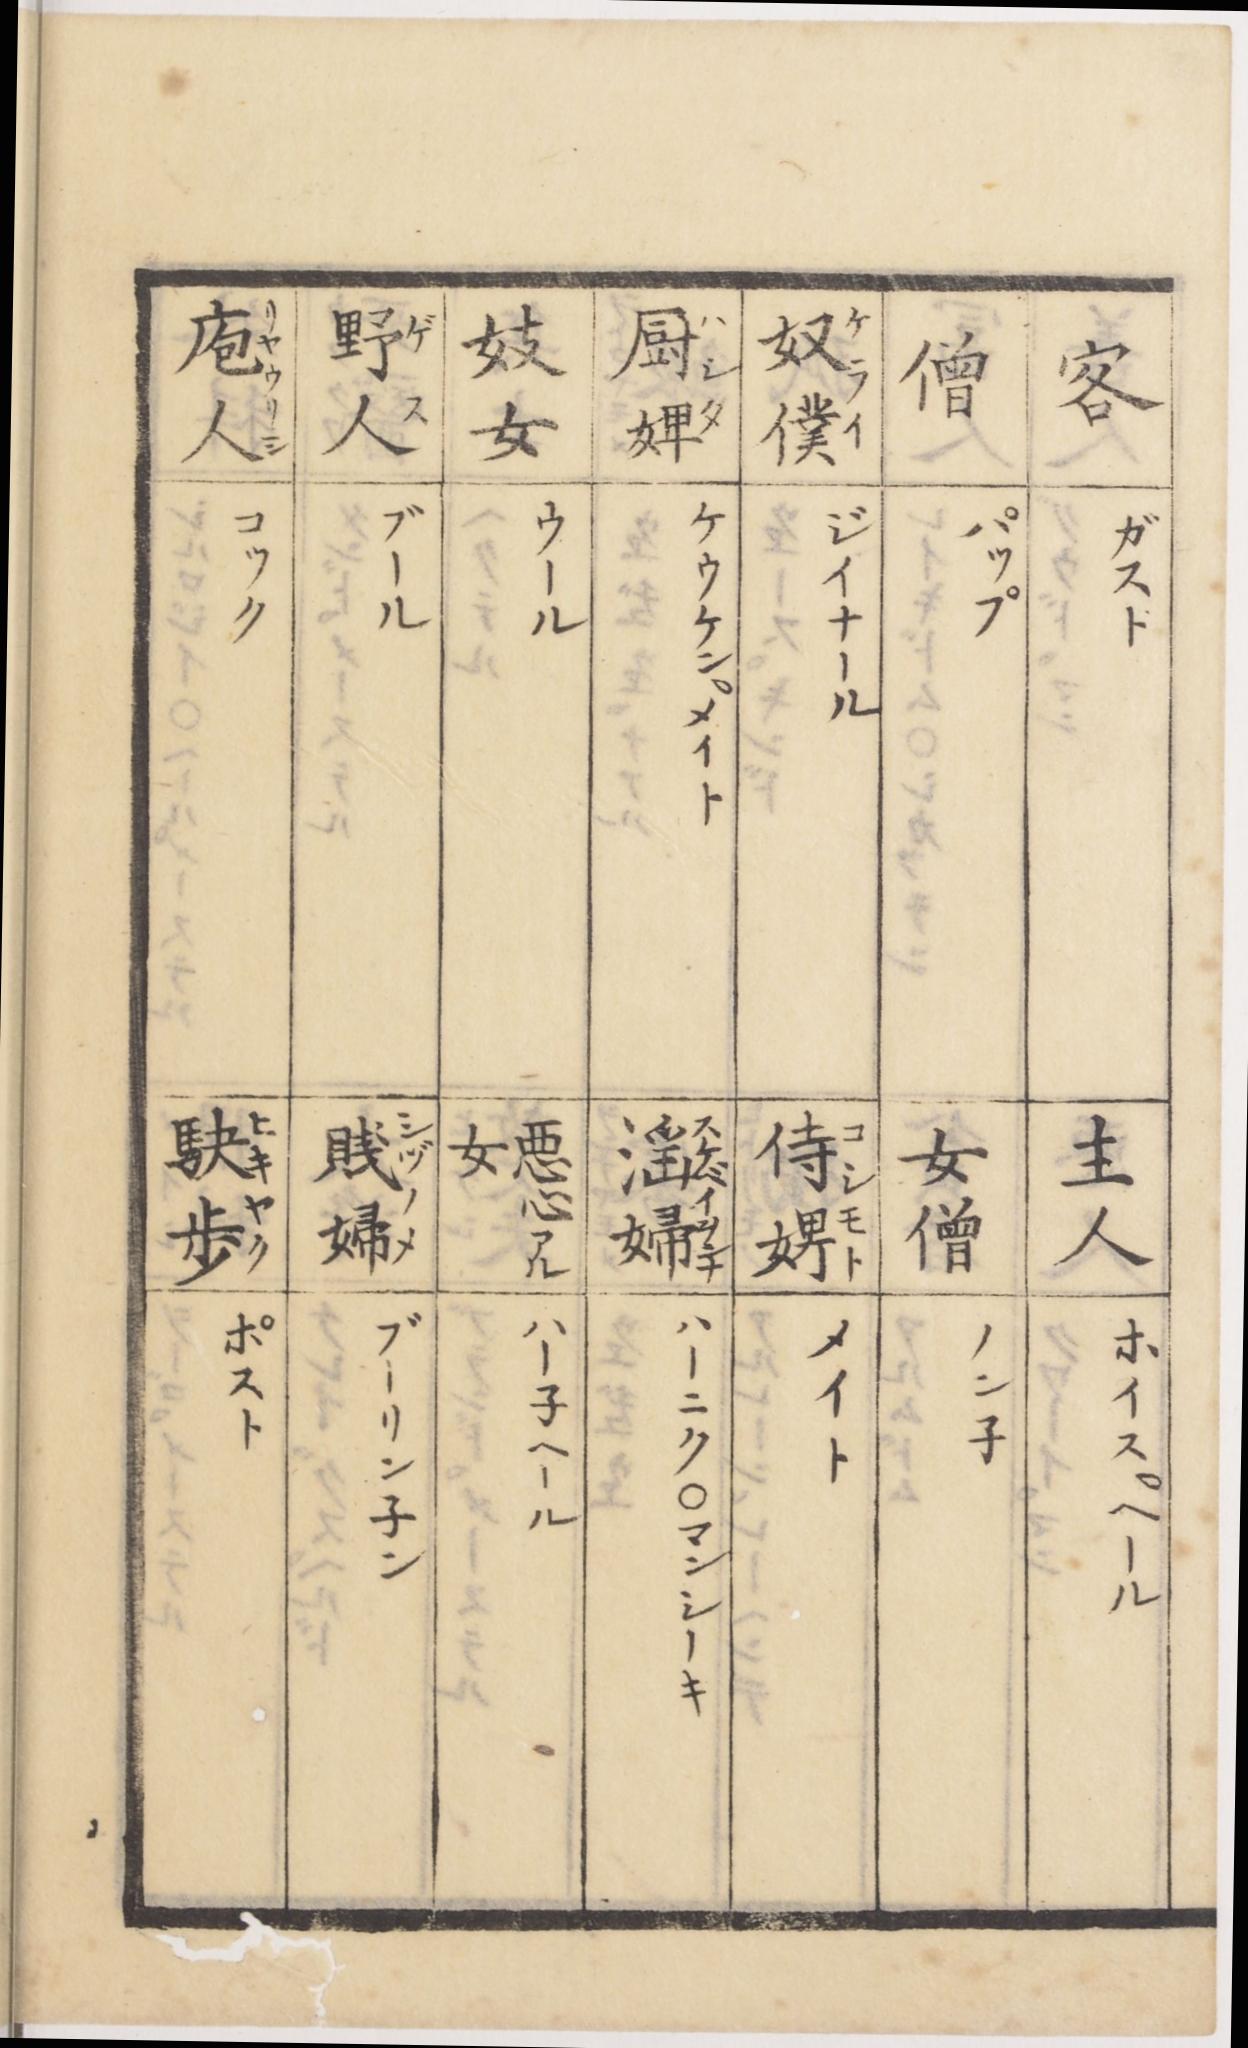 客 ガスド
主人 ホイス゜ヘール
僧 パップ
女僧 ノン子
奴僕 ケライ ジイナール
侍娚 コシモト メイト
厨婢 ハシタ ケウケン゜メイト
淫婦 ハーニク〇マンシーキ
妓女 ウール
悪心アル女 ハー子ヘール
野人 ゲス ブール
賎婦 シヅノメ ブーリン子ン
庖人 リヤウリニン コック
駃歩 ヒキヤク ポスト